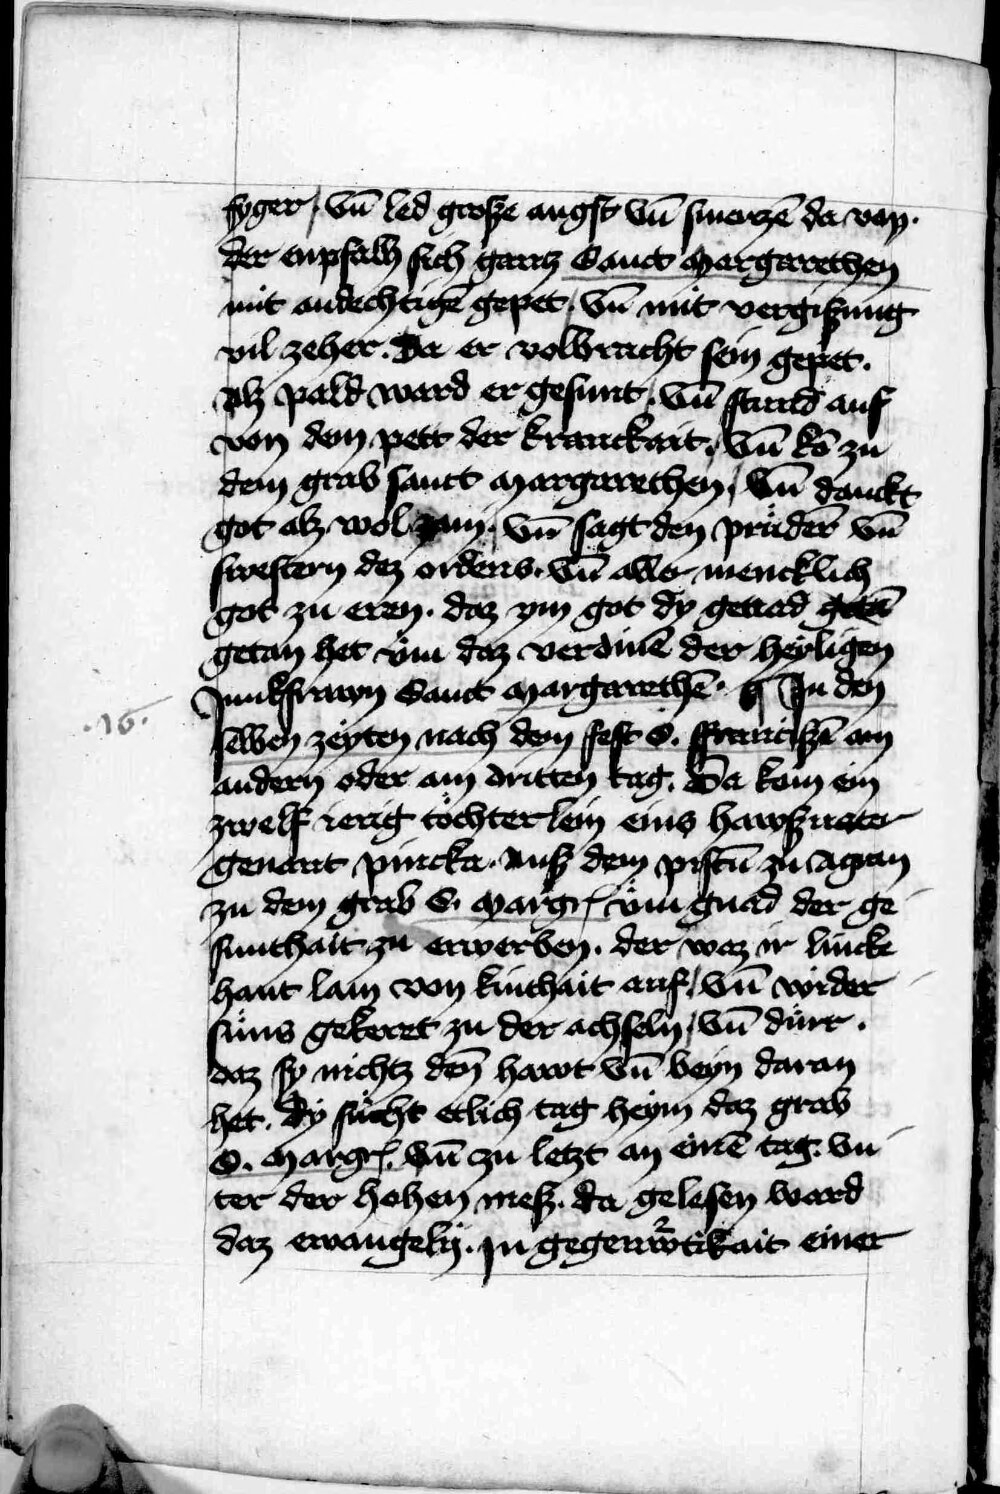 syger, vn̄ led große angst vn̄ smerczē da von.
der enpfalh sich gantz Sanct Margarethen
mit andechtigē gepet, vn̄ mit vergißung
vil zeher. Da er volbracht sein gepet.
alz pald ward er gesunt, vn̄ stund auf
von dem pett der kranckait, vn̄ kō zu
dem grab sanct Margarethen, vn̄ danckt
got alz wol zam, vn̄ sagt den prüdern̄ vn̄
swestern dez ordens. vn̄ aller mencklich
got zu eren. daz ym got dy genad getā
getan het vm̈ daz verdinē der heyligen
Junkfrawn Sanct Margarethē. ¶ In den
.16.
selben zeyten nach dem fest S. Francisci am
andern oder am dritten tag. Da kom ein
zwelf ierig töchterlein eins hawßuater
genant pincka. auß dem pistū zu Agran
zu dem grab S. Margr̄ vm̈ gnad der ge
sunthait zu erwerben. der waz ir lincke
hant lam von kinthait auf, vn̄ wider
süns gekeret zu der achseln, vn̄ dürr.
daz sy nichtz den̄ hawt vn̄ beyn daran
het. Dy sücht etlich tag heym daz grab
S. Margr̄. vn̄ zu letzt an einē tag. vn
ter der hohen meß. da gelesen ward
daz ewangely. In gegenwr̄tikait einer